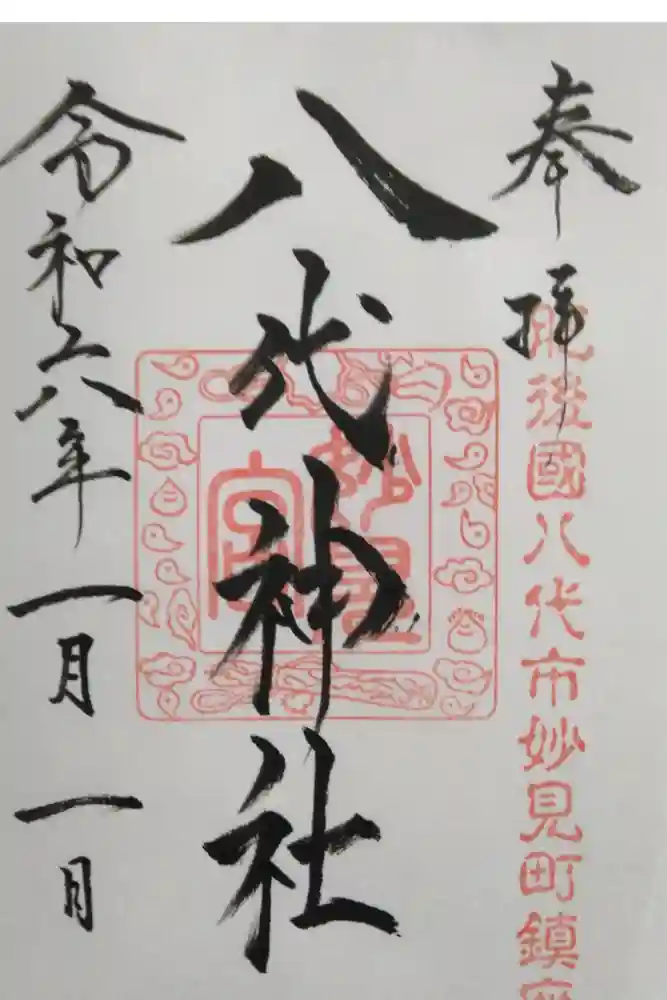 奉拝
肥後國八代市妙見町鎮座
八代神社
妙見
宮
令和六年一月一日